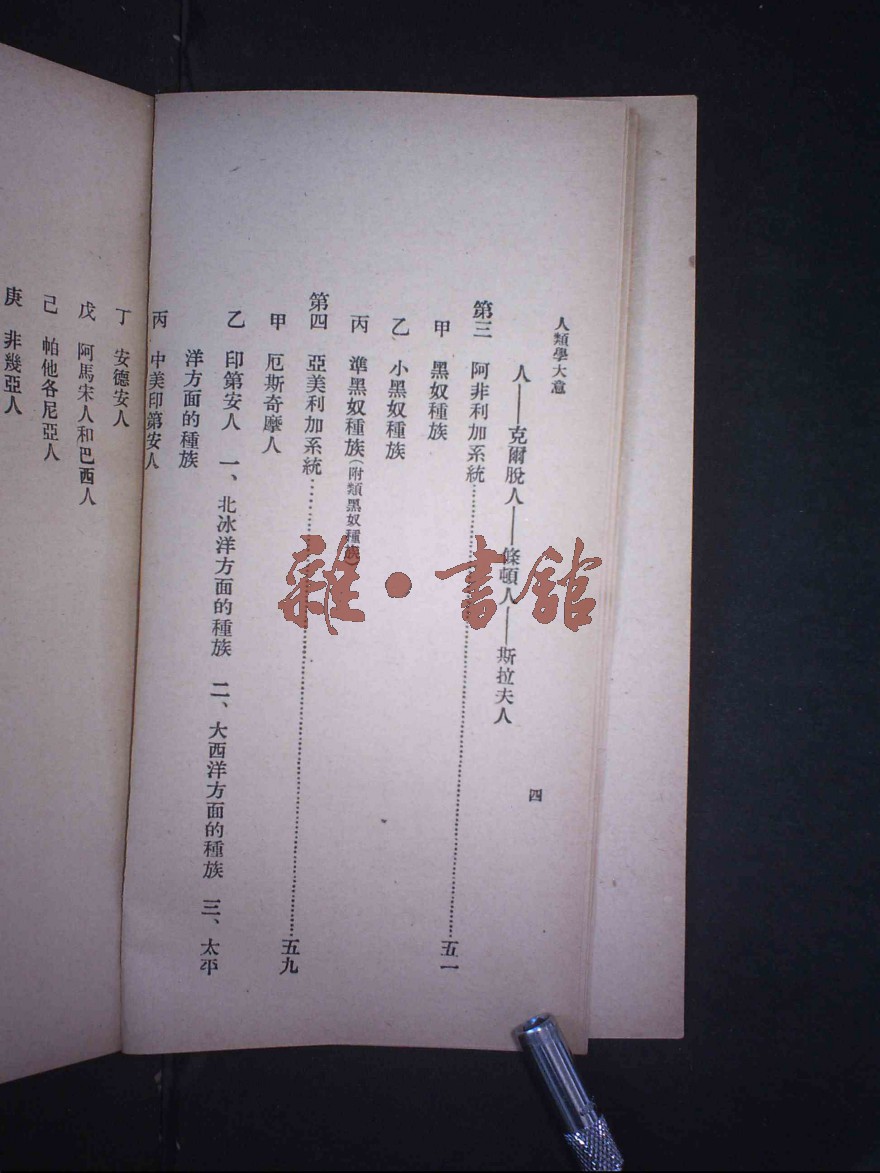 人類學大意
四
人——克爾脫人——條頓人——斯拉夫人
第三 阿非利加系統……五一
甲 黑奴種族
乙 小黑奴種族
丙 準黑奴種族(附類黑奴種族)
第四 亞美利加系統……五九
甲 厄斯奇摩人
乙 印第安人 一、北冰洋方面的種族 二、大西洋方面的種族 三、太平
洋方面的種族
丙 中美印第安人
丁 安德安人
戊 阿馬宋人和巴西人
己 帕他各尼亞人
庚 非幾亞人
雜·書館